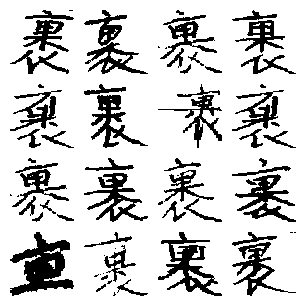 裹裹裹裹
裹裹裹裹
裹裹裹裹
裹裹裹